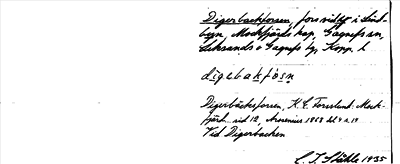 Digerbackforsen, fors vid by i Lind-
byn, Mockfjärds kap, Gagnefs sn,
Leksands o Gagnefs tg, Kopp. l
digebakfòsn
Digerbäcksforsen, K. E. Forsslund: Mock-
fjärd sid 12, Arosenius 1868
Vid Digerbacken
C. I. Ståhle 1935